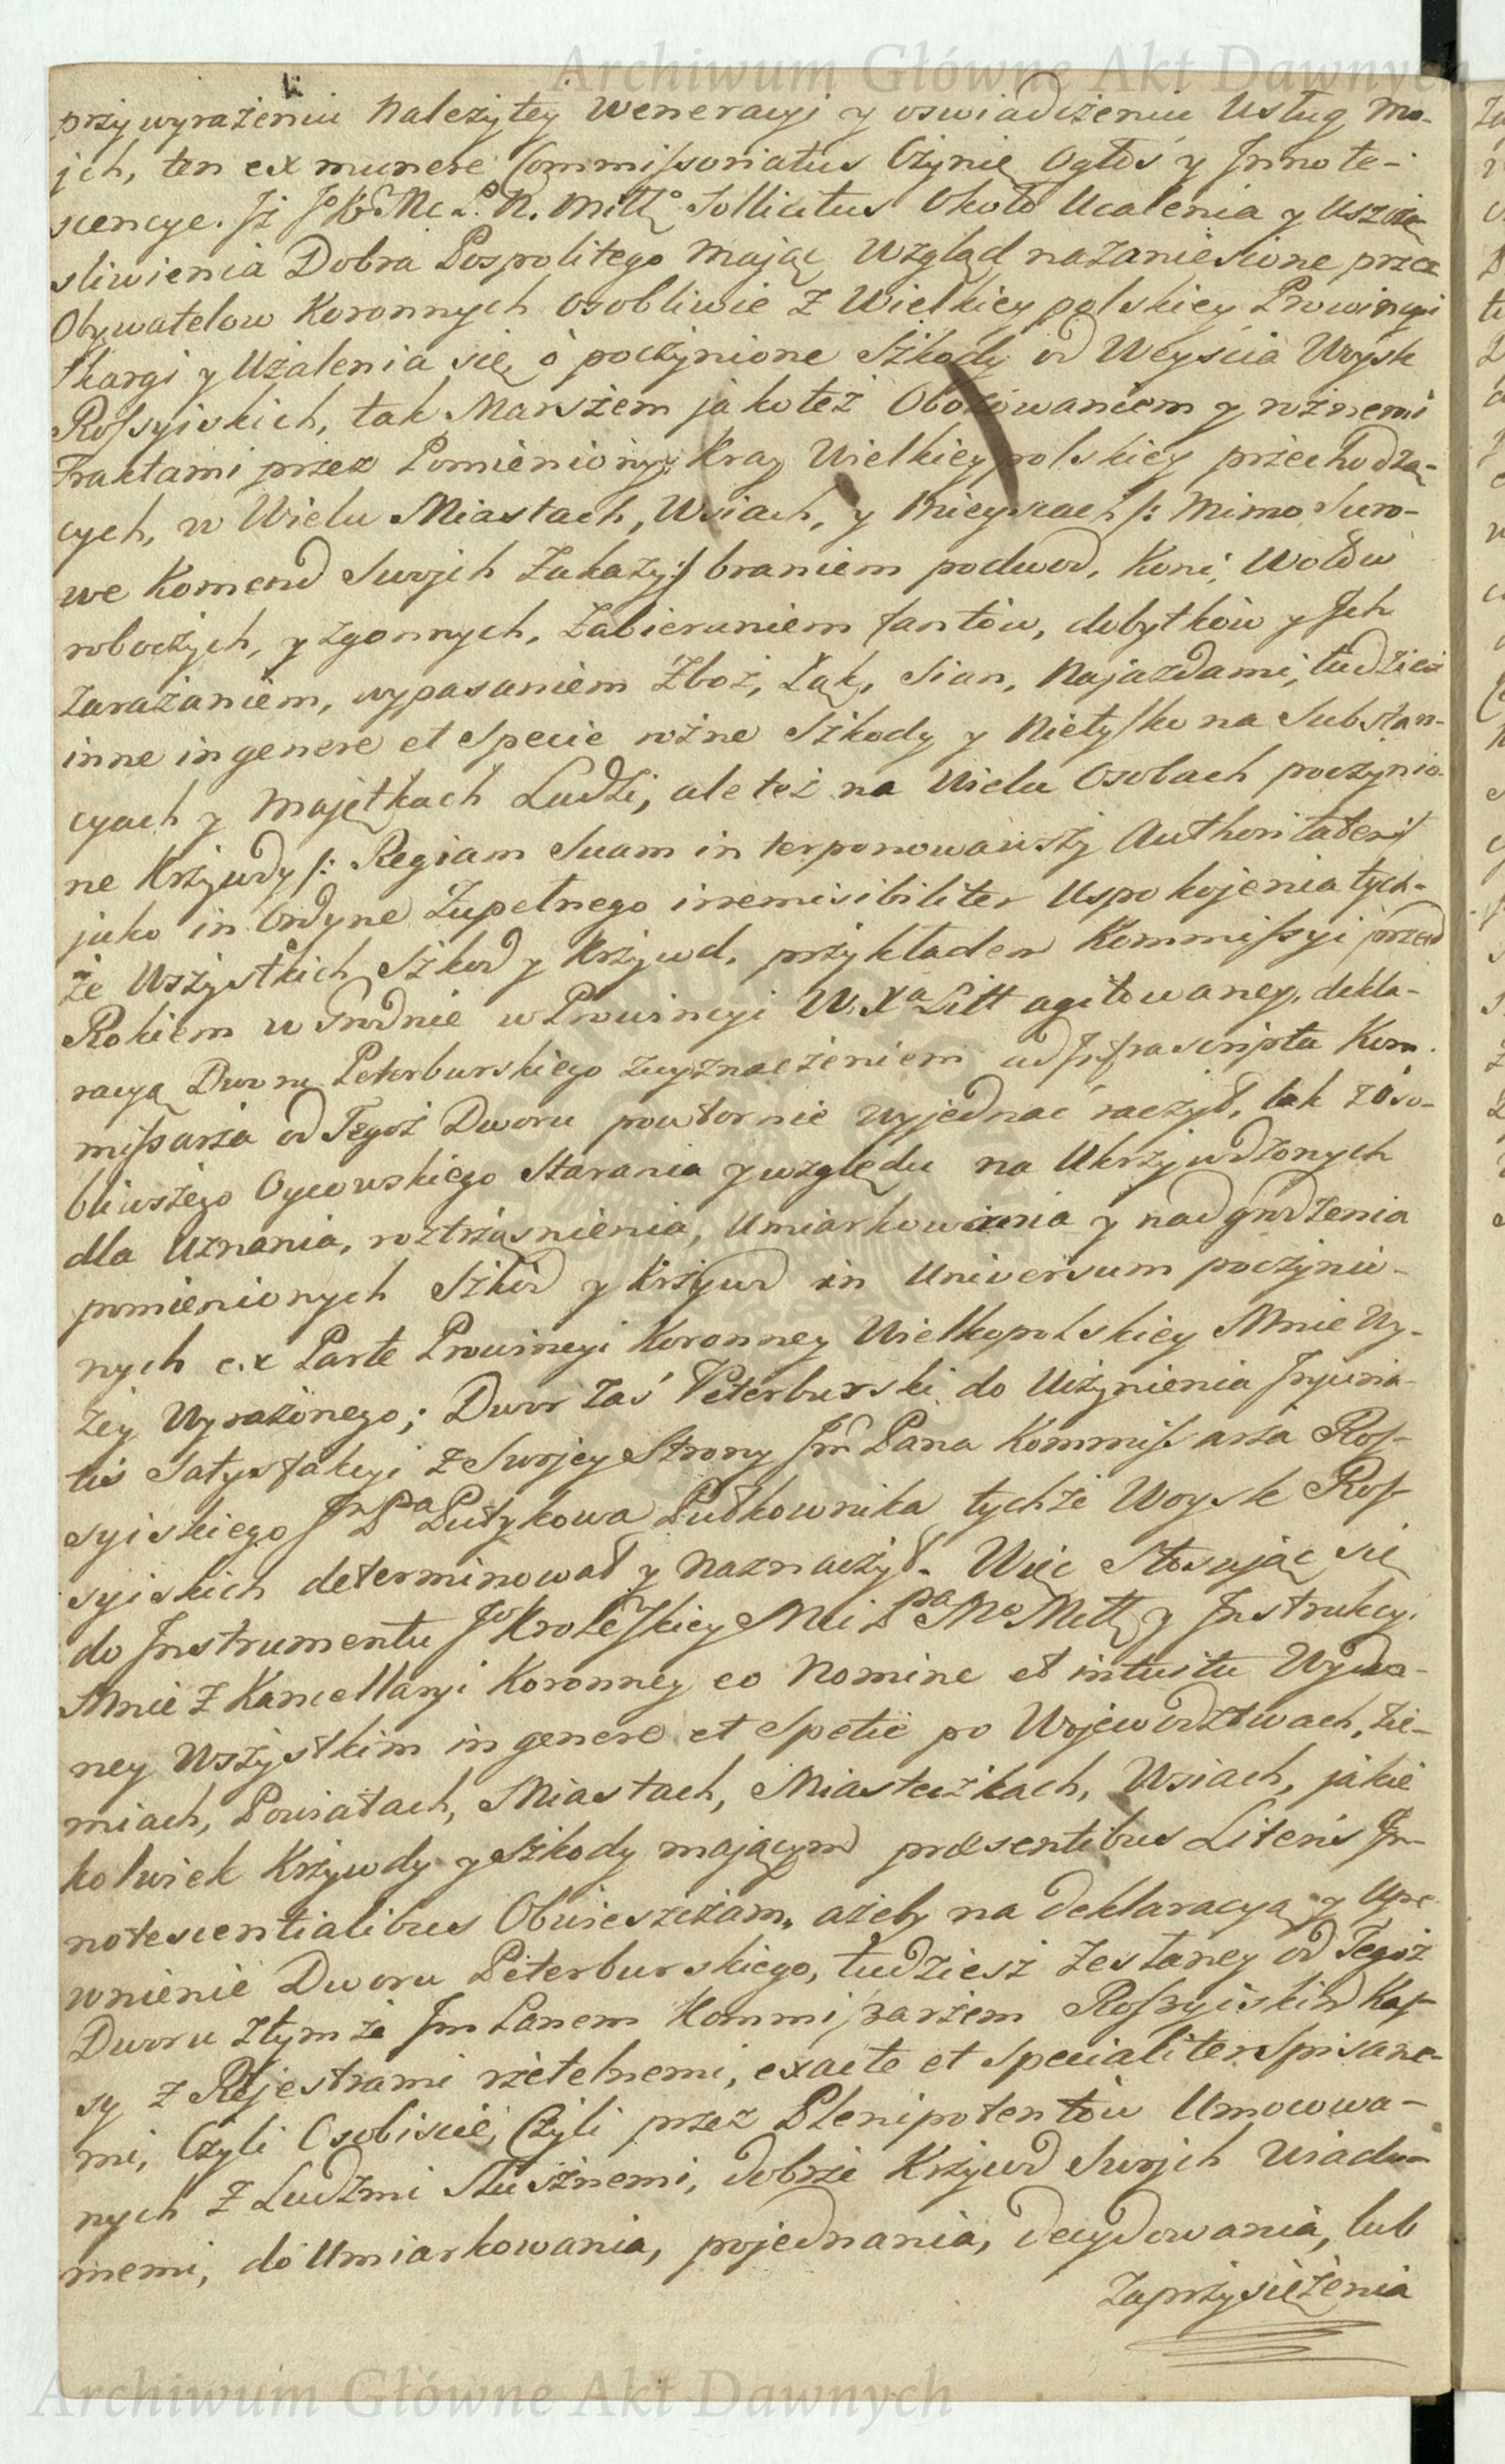 Archiwum Główne Akt Dawnych
przy wyrażeniu Należytey Weneracyi y oswiadczeniu Usług mo-
jch, ten ex munere Commissoriatus Czynię Ogłos y Jnnote-
scencye. Jż JoKrMc P. N. Miłł. Sollicitus Około Ucalenia y uszczę-
sliwienia Dobra Pospolitego mając Wzgląd na zaniesione przez
Obywatelow Koronnych osobliwie z Wielkiey polskiey Prowincyi
skargi y Użalenia się o poczynione Szkody od Weyscia Woysk
Rossyiskich, tak Marszem jako też Obozowaniem y rożnemi
Traktami przez Pomieniony Kray Wielkiey polskiey przechodzą-
cych, w Wielu Miastach, Wsiach, y Mieyscach /: Mimo Suro-
we Komend Swojch Zakazy :/ braniem podwod, Koni, Wołow
roboczych, y zgonnych, Zabieraniem fantów, dobytków y Jch
Zarażaniem, wypasaniem Zboż, Łąk, Sian, Najazdami, tudziesz
inne in genere et Specie rożne Szkody y Niety/ko na Substan-
cyach y Majętkach Ludzi, ale też na Wielu Osobach poczynio-
ne Krzywdy /: Regiam Suam interponowawszy Authoritatem :/
jako in Ordyne Zupełnego irremisibiliter Uspokojenia tych-
że Wszystkich Szkod y Krzywd, przykładem Kommissyi przed
Rokiem w Grodnie w Prowincyi W. Xa Litt agitowaney, dekla-
racyą Dworu Peterburskiego Wyznaczeniem ad Jnfrascripta Kom-
missarza od Tegoż Dworu powtornie Wyjednać raczył, tak z Oso-
bliwszego Oycowskiego Starania y względu na Ukrzywdzonych
dla Uznania, roztrząsnienia, Umiarkowania y nadgrodzenia
pomienionych Szkód y Krzywd in Universum poczynio-
nych ex Parte Prowincyi Koronney Wielkopolskiey Mnie Wy-
żey Wyrażonego; Dwor Zaś Peterburski do Uczynienia Jnjuria-
tis Satysfakcyi z Swojey Strony Jm Pana Kommissarza Ros-
syiskiego Jm Pa Putykowa Pułkownika tychże Woysk Ros-
syiskich determinował y Naznaczył. Więc Stosując się
do Jnstrumentu Jo Krolewskiey Mci Pa Mo Miłł y Jnstrukcyi
Mnie z Kancellaryi Koronney eo Nomine et intuitu Wyda-
ney Wszystkim in genere et Spetie po Wojewodztwach, Zie-
miach, Powiatach, Miastach, Miasteczkach, Wsiach, jakie
kolwiek Krzywdy y Szkody mającym præsentibus Literis Jn-
notescentialibus Obwieszczam, ażeby na deklaracyą y Upe-
wnienie Dworu Peterburskiego, tudziesz Zesłaney od Tegoż
Dworu z tymże Jm Panem Kommissarzem Rossyiskim Kas-
sy z Rejestrami rzetelnemi, exacte et Specialiter Spisane-
mi, Czyli Osobiscie, Czyli przez Plenipotentów Umocowa-
nych z Ludzmi Słusznemi, dobrze Krzywd Swojch Wiado-
memi, do Umiarkowania, pojednania, decydowania, lub
Zaprzysiężenia
Archiwum Główne Akt Dawnych